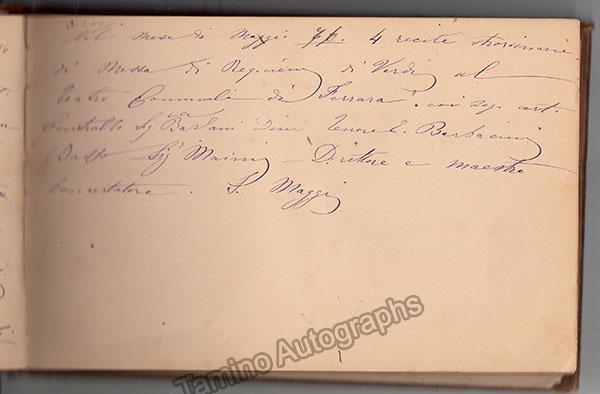 Nel mese di Maggio pp. 4 recite straordinarie
di Messa di Requiem di Verdi al
Teatro Comunale di Ferrara. coi seg. art.
Contralto Sig.ra Barlani Dini Tenore E. Barbacini
Basso Sig Maini - Direttore e maestro
Concertatore. S. Maggi
Tamino Autographs